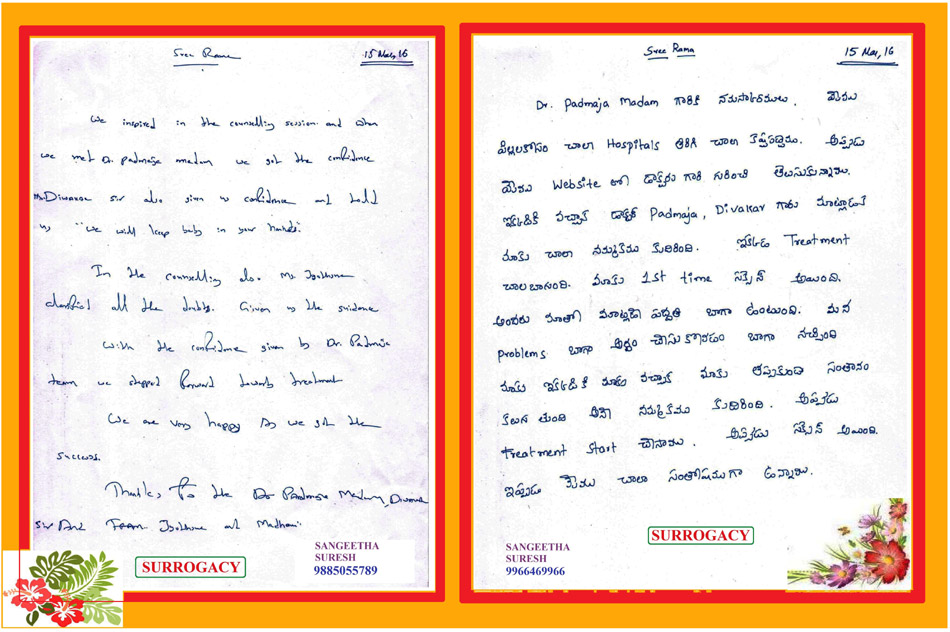 Sree Rama
15 Mar, 16
We inspired in the counselling session. and when
we met Dr. Padmaja madam we got the confidence
Mr. Diwakar sir also given us confidence and told
us "we will keep baby in your hands".
In the counselling also Ms.
clarified all the doubts. Given us the guidance
With the confidence given by Dr. Padmaja
team we stepped forward towards treatment
We are very happy as we got the
success.
Thanks to the Dr Padmaja Madam, Diwakar
sir And Team and Madhavi
SURROGACY
SANGEETHA
SURESH
9885055789
Sree Rama
15 Mar, 16
Dr. Padmaja Madam గారికి నమస్కారములు. మేము
పిల్లలకోసం చాలా Hospitals తిరిగి చాలా కష్టపడ్డాము. అప్పుడు
మేము Website లో డాక్టరు గారి గురించి తెలుసుకున్నాము.
ఇక్కడికి వచ్చాక డాక్టర్ Padmaja, Divakar గారు మాట్లాడాక
మాకు చాలా నమ్మకము కుదిరింది. ఇక్కడ Treatment
చాలా బాగుంది. మాకు 1st time సక్సెస్ అయింది.
అందరు మాతో మాట్లాడే పద్ధతి బాగా ఉంటుంది. మన
problems బాగా అర్థం చేసుకోవడం బాగా నచ్చింది
మాకు ఇక్కడికి మేము వచ్చాక మాకు తప్పకుండా సంతానం
కలుగుతుంది అనే నమ్మకము కుదిరింది. అప్పుడు
treatment start చేసాము. అప్పుడు సక్సెస్ అయింది.
ఇప్పుడు మేము చాలా సంతోషముగా ఉన్నాము.
SURROGACY
SANGEETHA
SURESH
9966469966